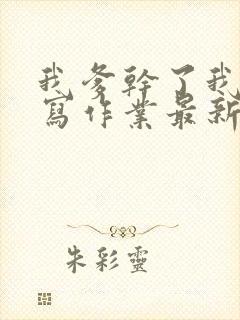 我爹幹了我
寫作業最新
朱彩靈